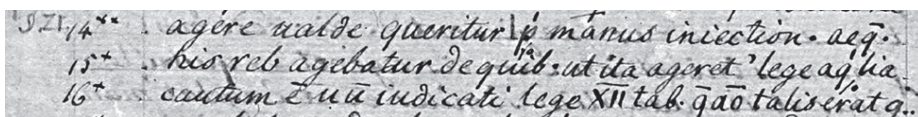 14×× . agere ualde queritur p̱ manus iniection· aeq̄·
15+ . his reb agebatur de quib: ut ita ageret' lege aq̄lia
16+ . cautum ē uū iudicati lege XII tab· q̄ aō talis erat q̄·